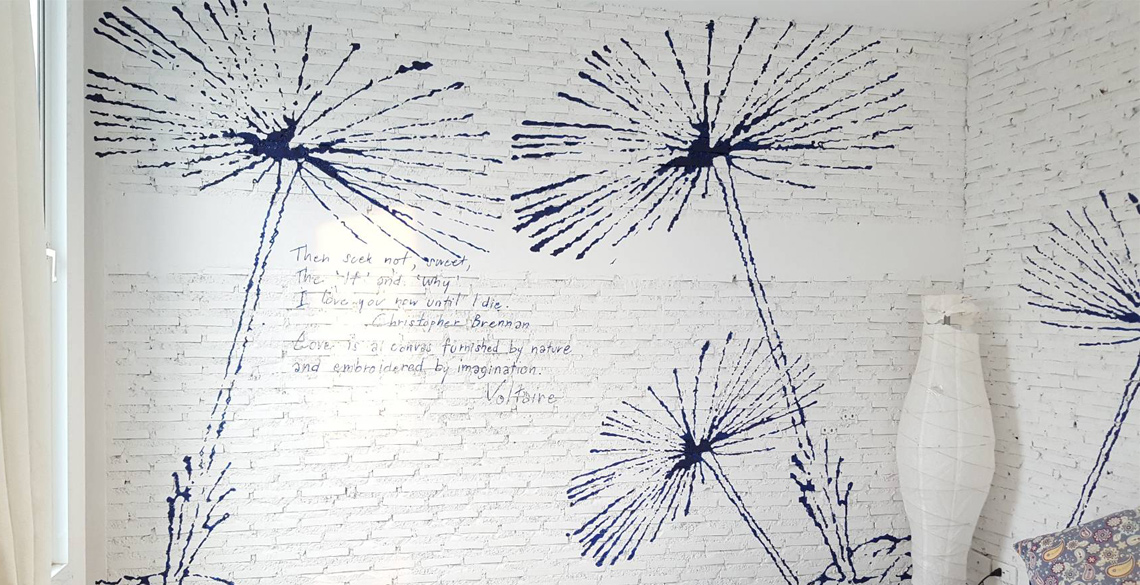 Then seek not, sweet,
The 'If' and 'Why'
I love you now until I die.
Christopher Brennan
Love is a canvas furnished by nature
and embroidered by imagination.
Voltaire